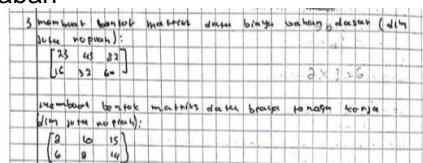 3 membuat bentuk matriks data biaya bahan dasar (dlm
juta rupiah):
[23 45 82
16 32 60]
2 x 3 = 6
membuat bentuk matriks data biaya tenaga kerja
(dlm juta rupiah):
[8 10 15
6 8 14]